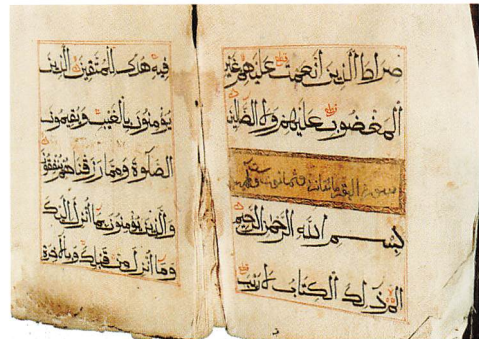 صراط الذين أنعمت عليهم غير
المغضوب عليهم ولا الضالين
سورة البقرة مائتان وثمانون وست آية
بسم الله الرحمن الرحيم
الم ذلك الكتاب لا ريب
فيه هدى للمتقين الذين
يؤمنون بالغيب ويقيمون
الصلوة ومما رزقناهم ينفقون
والذين يؤمنون بما أنزل إليك
وما أنزل من قبلك وبالآخرة